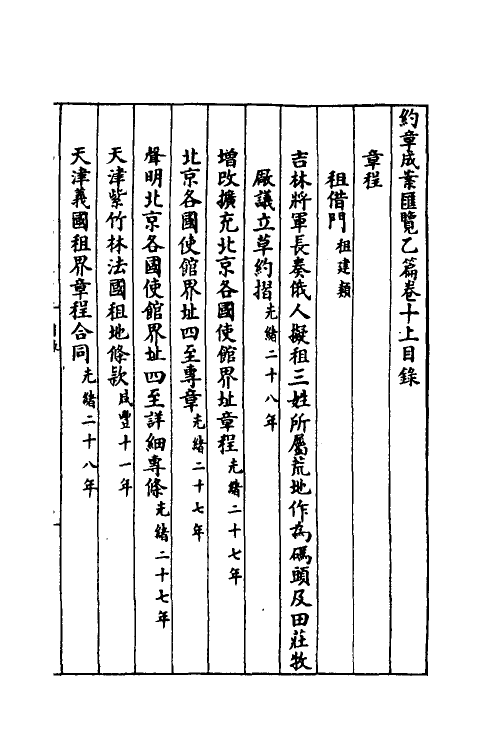 約章成案匯覽乙篇卷十上目錄
章程
租借門 租建類
吉林將軍長奏俄人擬租三姓所屬荒地作為碼頭及田莊牧
廠議立草約摺光緒二十八年
增改擴充北京各國使館界址章程光緒二十七年
北京各國使館界址四至專章光緒二十七年
聲明北京各國使館界址四至詳細專條光緒二十七年
天津紫竹林法國租地條款咸豐十一年
天津義國租界章程合同光緒二十八年